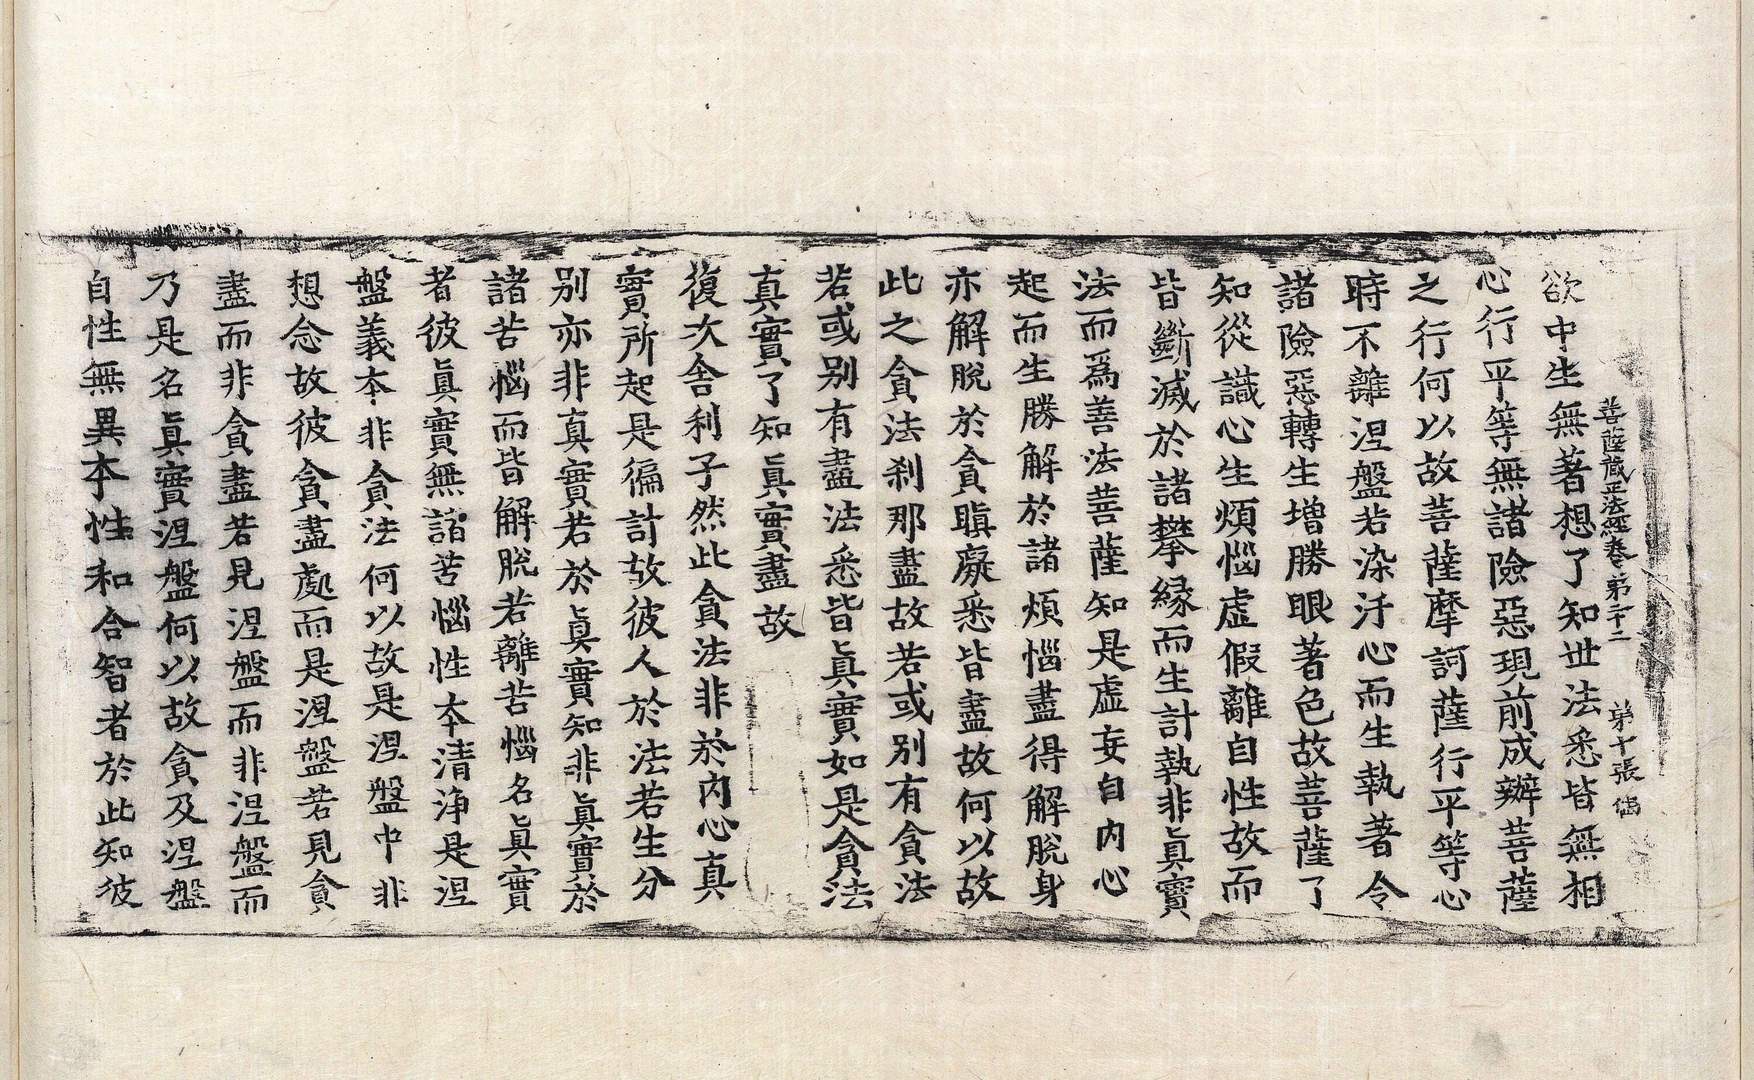 菩薩藏正法經卷第三十二 第十張
欲中生無著想了知世法悉皆無相
心行平等無諸險惡現前成辦菩薩
之行何以故菩薩摩訶薩行平等心
時不離涅盤若染汙心而生執著令
諸險惡轉生增勝眼著色故菩薩了
知從識心生煩惱虛假離自性故而
皆斷滅於諸攀緣而生計執非眞實
法而爲善法菩薩知是虛妄自內心
起而生勝解於諸煩惱盡得解脫身
亦解脫於貪瞋癡悉皆盡故何以故
此之貪法刹那盡故若或别有貪法
若或别有盡法悉皆眞實如是貪法
真實了知眞實盡故
復次舍利子然此貪法非於內心真
實所起是徧計故彼人於法若生分
别亦非真實若於眞實知非眞實於
諸苦惱而皆解脫若離苦惱名眞實
者彼眞實無諸苦惱性本清淨是涅
盤義本非貪法何以故是涅盤中非
想念故彼貪盡處而是涅盤若見貪
盡而非貪盡若見涅盤而非涅盤而
乃是名眞實涅盤何以故貪及涅盤
自性無異本性和合智者於此知彼